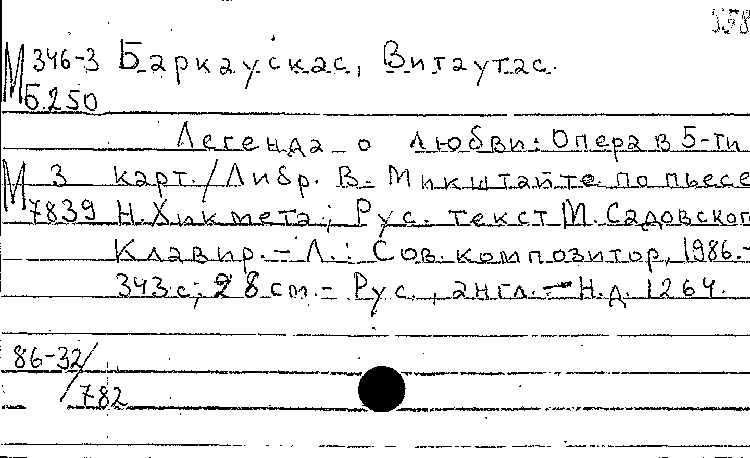 358
М 346-3 Баркаускас, Витаутас.
Б250
Легенда о любви: Опера в 5-ти
М 3 карт./Либр. В. Микштайте по пьесе
7839 Н.Хикмета; Рус. текст М.Садовского
Клавир.-Л.: Сов. композитор, 1986.-
343с; 28 см.- Рус., англ.- Н.д. 1264.
86-32/
782